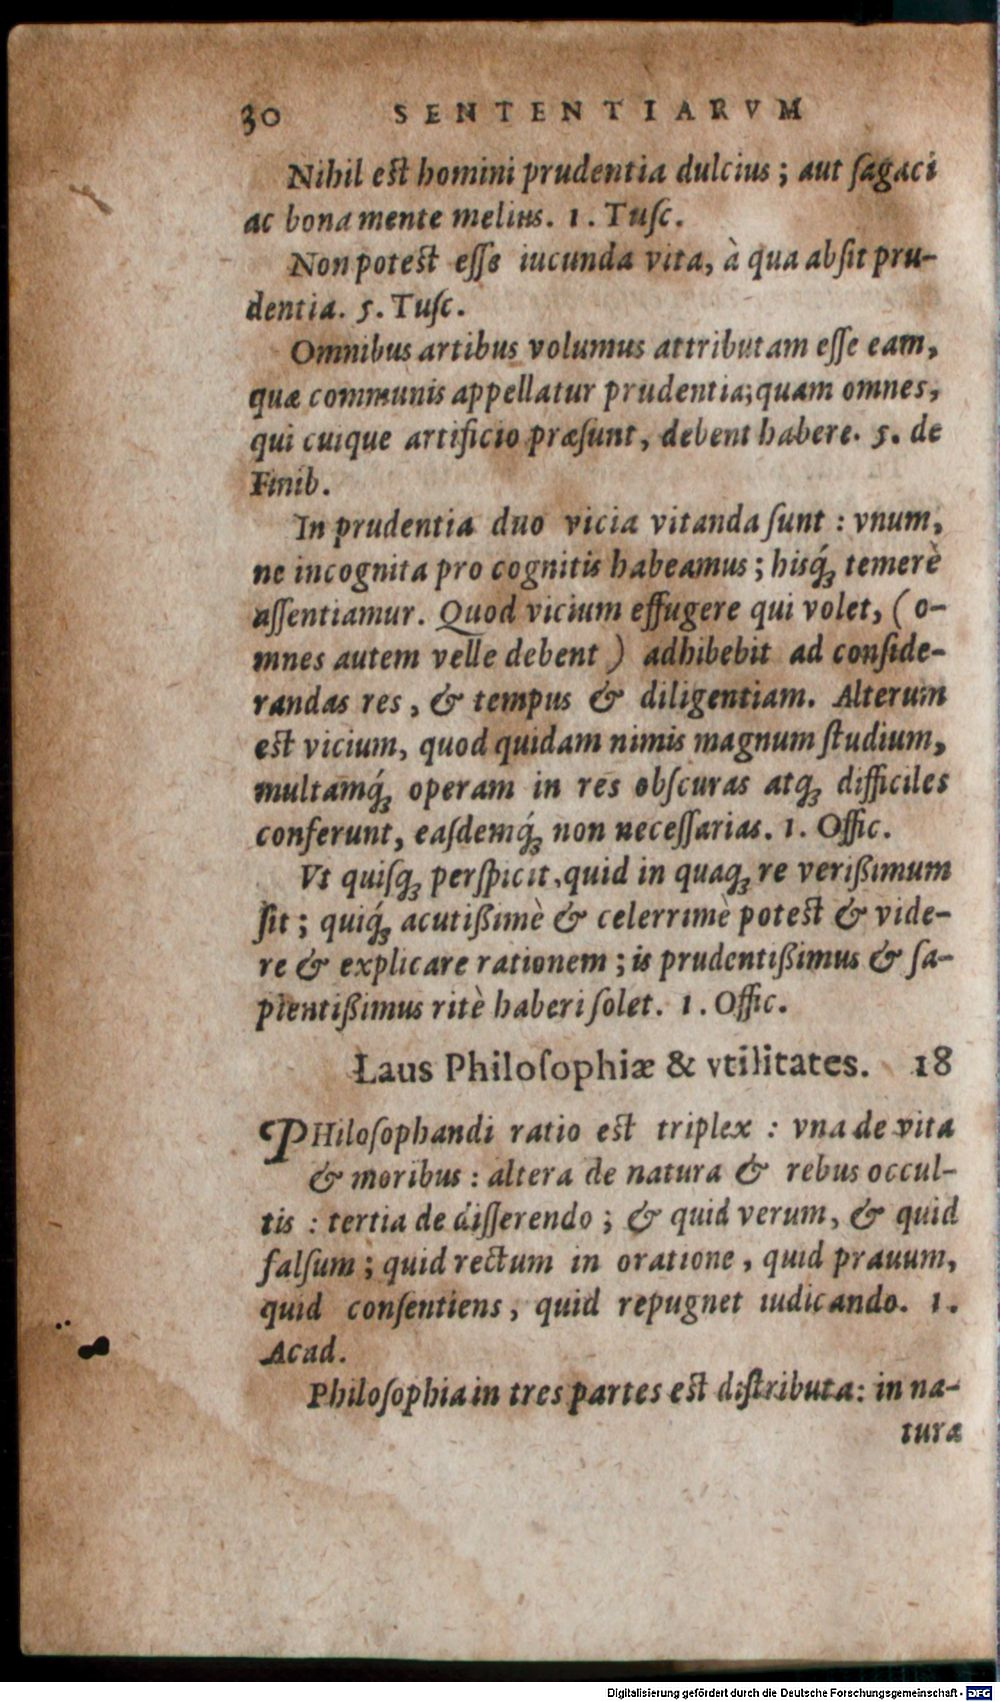 30 SENTENTIARVM
Nihil est homini prudentia dulcius ; aut ſagaci
ac bona mente melius. 1. Tuſc.
Non potest eſſe iucunda vita, à qua abſit pru-
dentia. 5. Tuſc.
Omnibus artibus volumus attributam eſſe eam,
quæ communis appellatur prudentia; quam omnes,
qui cuique artificio præſunt, debent habere. 5. de
Finib.
In prudentia duo vicia vitanda ſunt : vnum,
ne incognita pro cognitis habeamus ; hisq́ꝫ temerè
aſſentiamur. Quod vicium effugere qui volet, ( o-
mnes autem velle debent ) adhibebit ad conſide-
randas res, & tempus & diligentiam. Alterum
est vicium, quod quidam nimis magnum ſtudium,
multamq́ꝫ operam in res obſcuras atqꝫ difficiles
conferunt, eaſdemq́ꝫ non neceſſarias. 1. Offic.
Vt quiſqꝫ perſpicit, quid in quaqꝫ re verißimum
ſit ; quiq́ꝫ acutißimè & celerrimè potest & vide-
re & explicare rationem ; is prudentißimus & ſa-
pientißimus ritè haberi ſolet. 1. Offic.
Laus Philoſophiæ & vtilitates. 18
PHiloſophandi ratio est triplex : vna de vita
& moribus : altera de natura & rebus occul-
tis : tertia de diſſerendo ; & quid verum, & quid
falſum ; quid rectum in oratione, quid prauum,
quid conſentiens, quid repugnet iudicando. 1.
Acad.
Philoſophia in tres partes est diſtributa: in na-
tura
Digitalisierung gefördert durch die Deutsche Forschungsgemeinschaft - DFG